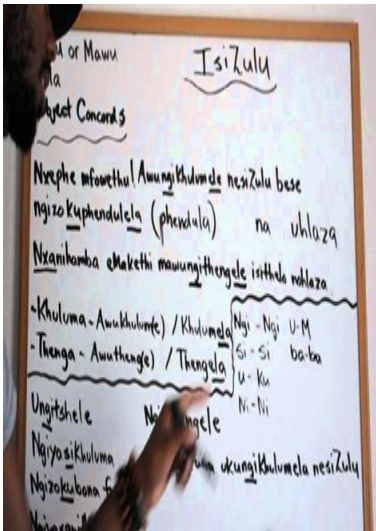 u or Mawu
IsiZulu
la
bject Concords
Nxephe mfowethu! Awungikhulumele nesiZulu bese
ngizokuphendulela (phendula) na uhlaza
Nxanihamba eMakethi mawungithengele isithelo nohlaza.
-Khuluma - Awukhulum(e) / Khulumela
-Thenga - Awutheng(e) / Thengela
Ngi - Ngi U-M
Si - Si ba-ba
U - Ku
Ni - Ni
Ungitshele
Ngiyosikhuluma ukungikhulumela nesiZulu
Ngizokubona